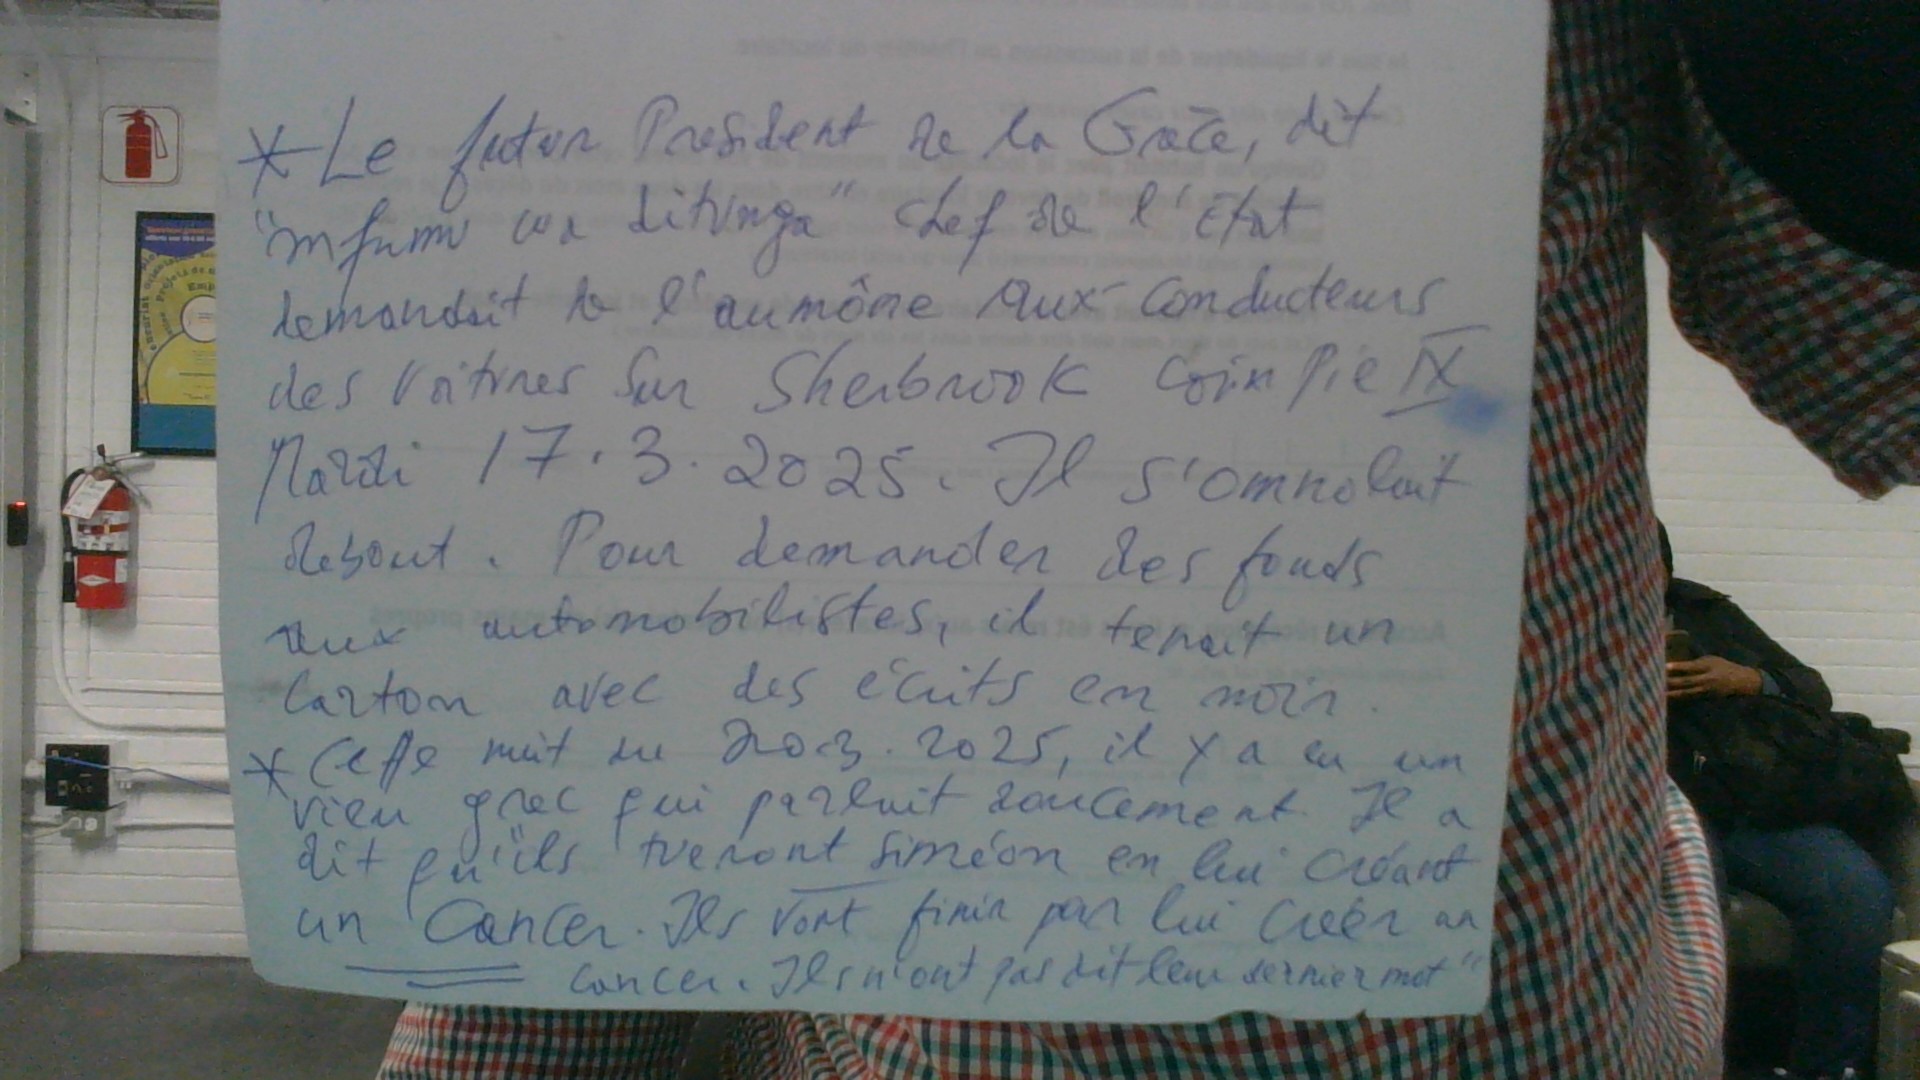 * Le futur President de la Grèce, dit
"mfumu wa ditunga" chef de l'Etat
demandait de l'aumône aux conducteurs
des voitures sur Sherbrook coin Pie IX
Mardi 17.3.2025. Il s'omnolait
debout. Pour demander des fonds
aux automobilistes, il tenait un
carton avec des écrits en noir.
* Cette nuit du 20.3.2025, il y a eu un
vieu grec qui parlait doucement. Il a
dit qu'"ils tueront siméon en lui créant
un Cancer. Ils vont finir par lui créer un
cancer. Ils n'ont pas dit leur dernier mot"